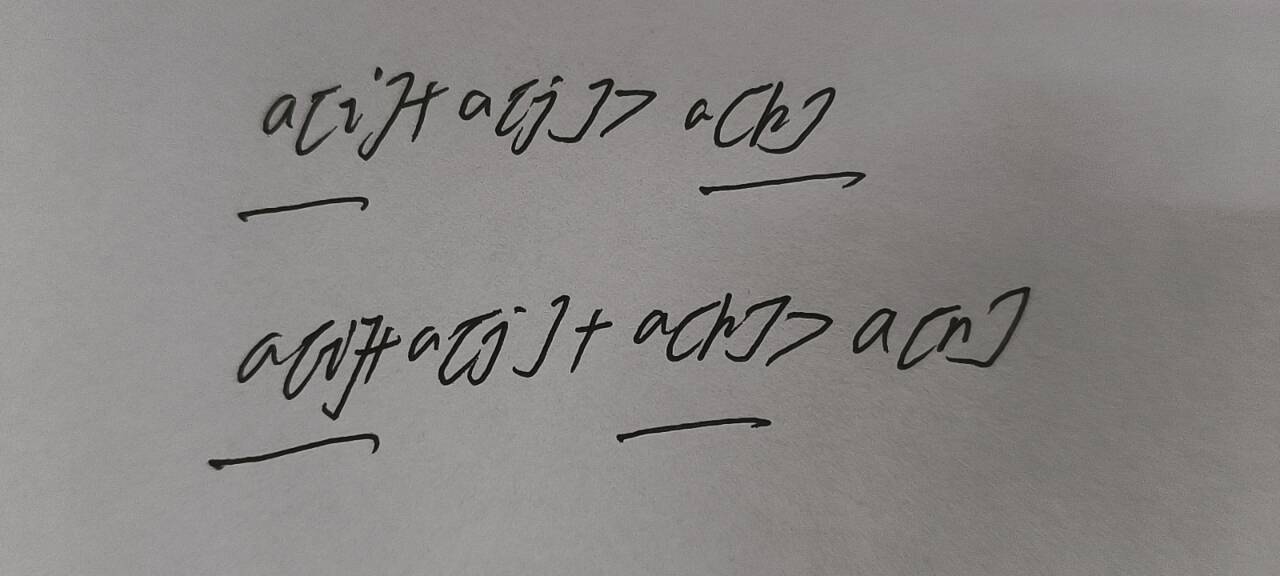 a[i]+a[j]>a[h]
a[i]+a[j]+a[h]>a[n]